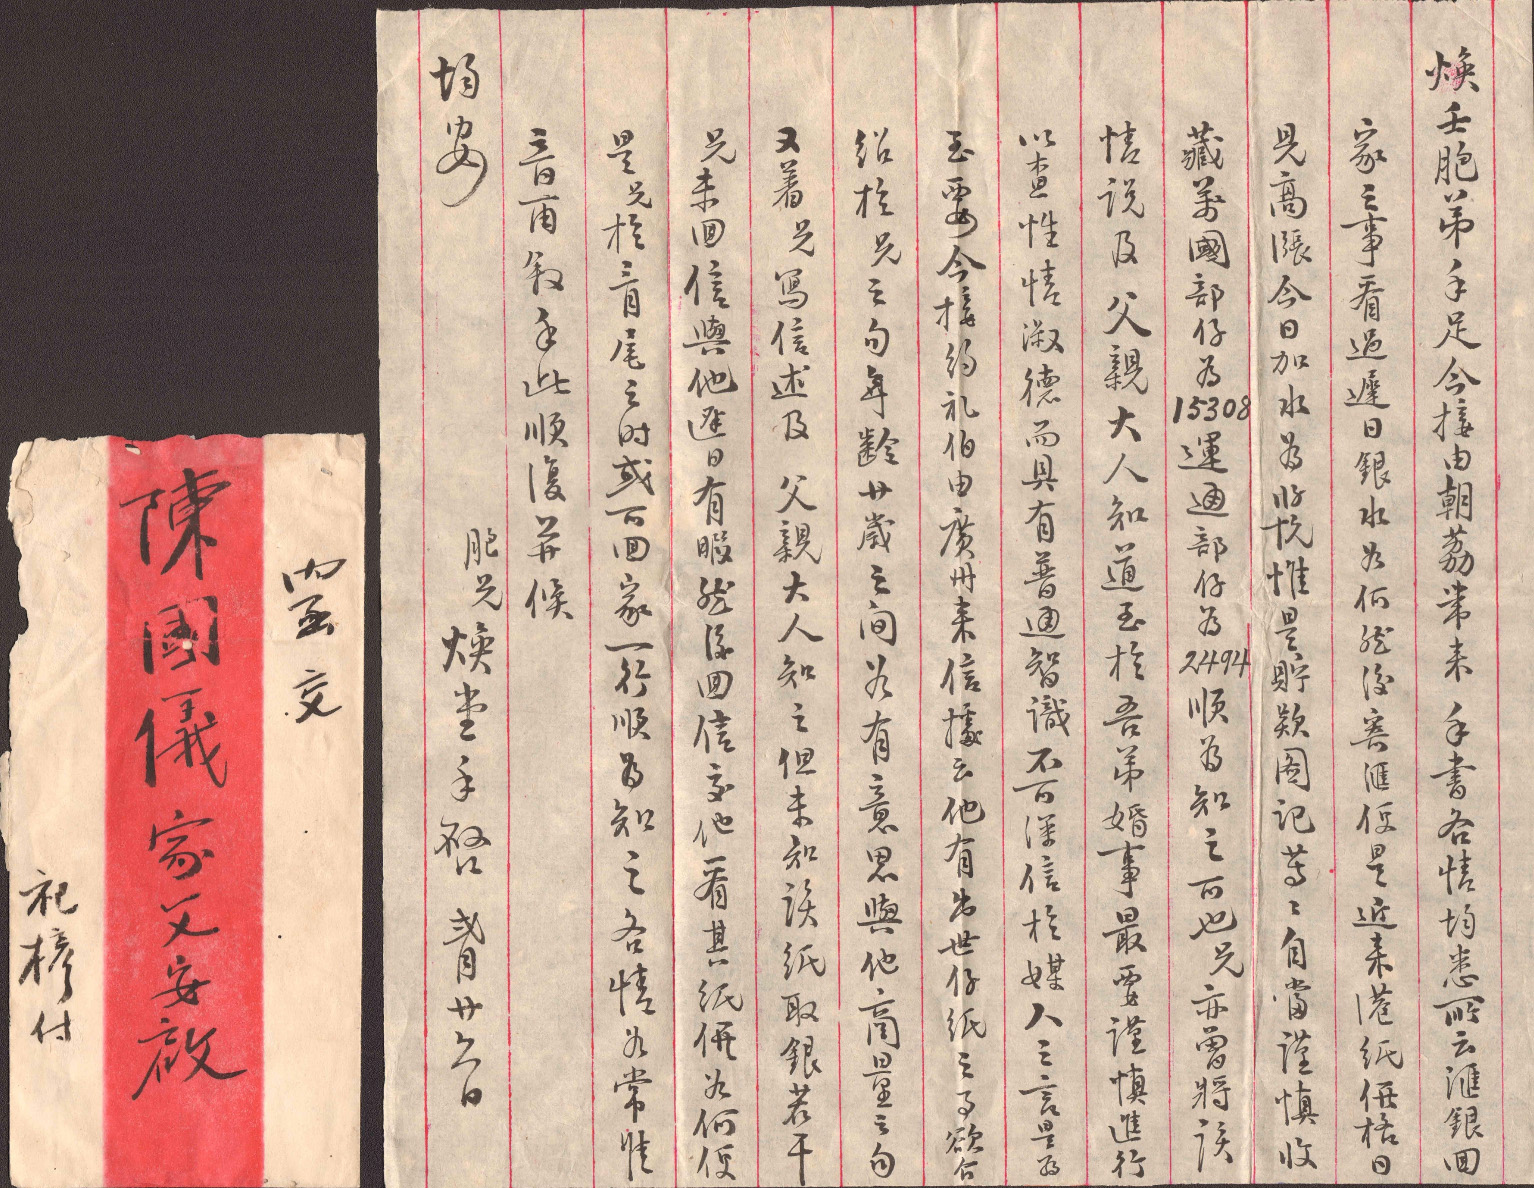 煥壬胞弟手足今接由朝荔帶来 手書各情均悉所云滙銀囬
家之事看過遲日銀水如何然後寄滙便是近来港紙価格日
見高漲今日加水為 惟是貯款图記等〻自當謹慎收
藏萬國部仔為15308運通部仔為2494順為知之可也兄亦曾將該
情説及 父親大人知道至於吾弟婚事最要謹慎進行
以查性情淑德而具有普通智識不可深信於媒人之言是為
至要今接約礼伯由廣州来信據云他有出世仔紙之事欲合
紹於兄之句年齡廿歲之间若有意思與他商量之句
又着兄寫信述及 父親大人知之但未知該紙取銀若干
兄未囬信與他遲日有暇然後囬信交他看其紙価如何便
是兄於三月尾之时或可囬家一行順為知之各情如常惟
言再敘手此順復并候
均安
胞兄煥堂手啓 弍月廿六日
內函 交
陳國儀家父安啟
祀榜付